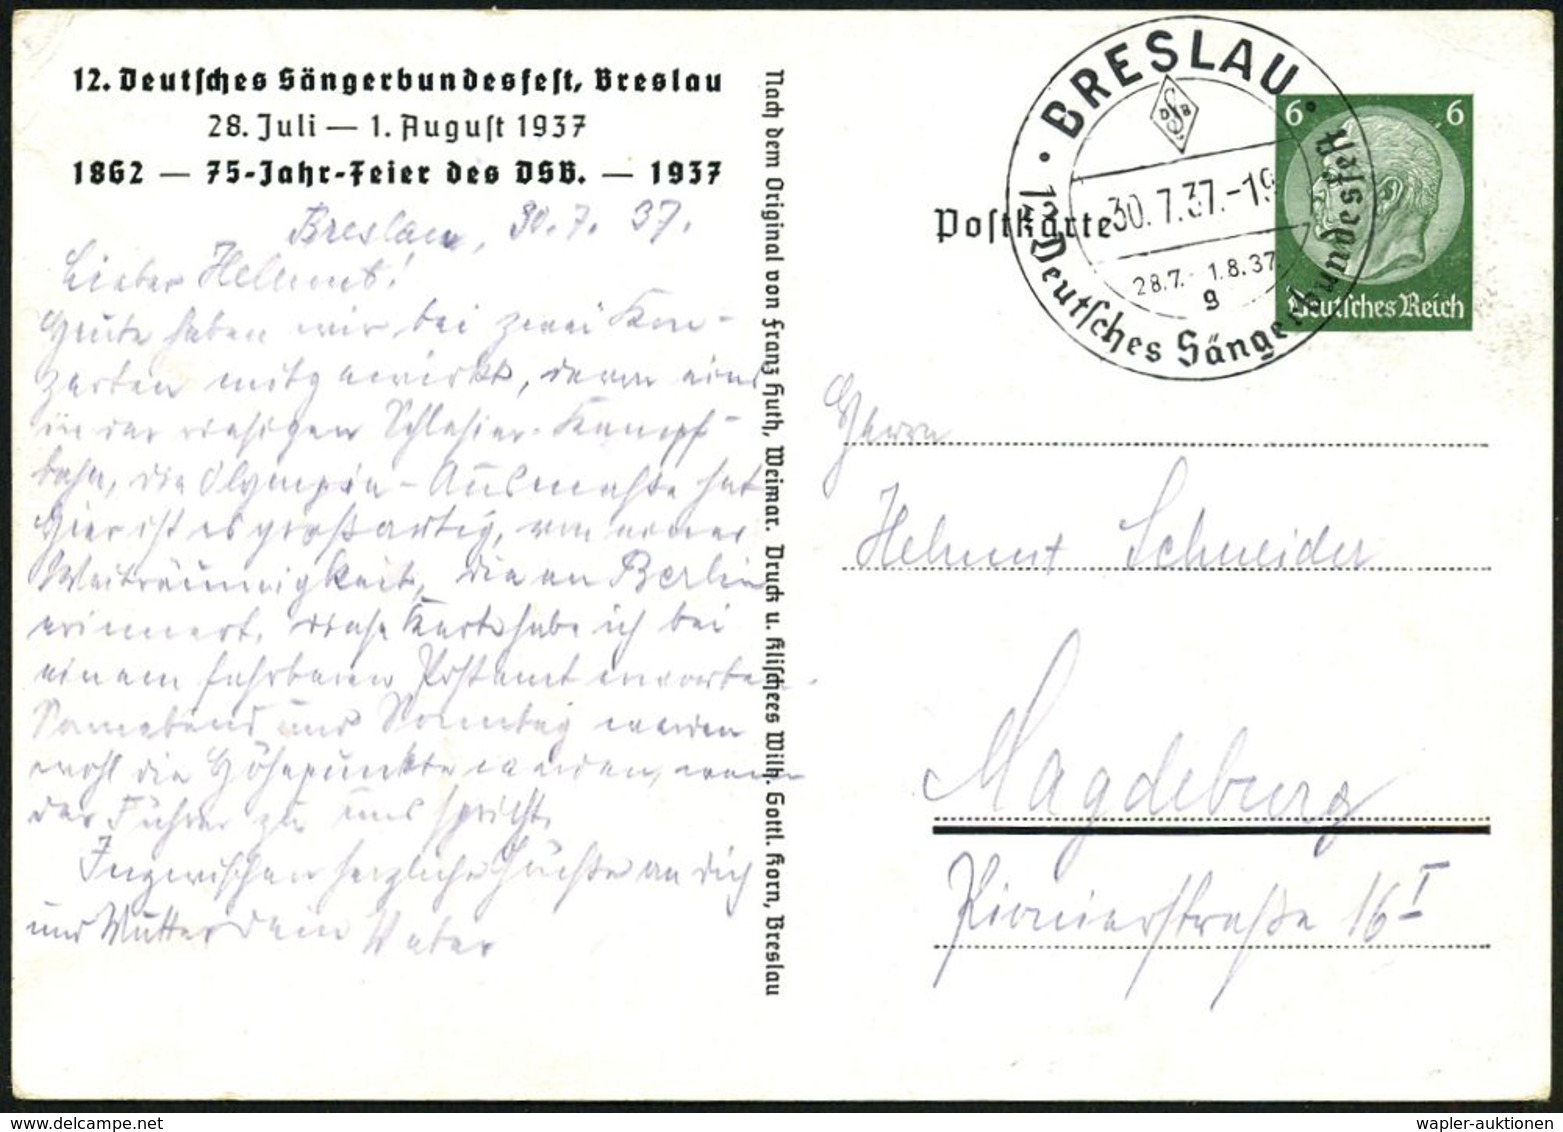 12. Deutsches Sängerbundesfest, Breslau
28. Juli — 1. August 1937
1862 — 75-Jahr-Feier des DSB. — 1937
Breslau, 30.7.37.
Lieber Helmut!
Heute haben wir bei zwei Kon-
zerten mitgewirkt, davon eins
in der riesigen Schlesier-Kampf-
bahn, die Olympia-Ausmaße hat
Hier ist es großartig, von einer
Weiträumigkeit, die an Berlin
erinnert. Diese Karte habe ich bei
einem fahrbaren Postamt erworben.
Sonnabend und Sonntag werden
wohl die Höhepunkte werden, wenn
der Führer zu uns spricht.
Inzwischen herzliche Grüße an Dich
und Mutter Dein Vater
Nach dem Original von Franz Huth, Weimar. Druck u. Klischees Wilh. Gottl. Korn, Breslau
Postkarte
BRESLAU
DSB
30.7.37.-19
28.7.-1.8.37.
g
12. Deutsches Sängerbundesfest
6 6
Deutsches Reich
Herrn
Helmut Schneider
Magdeburg
Pionierstraße 16 I
wapler-auktionen